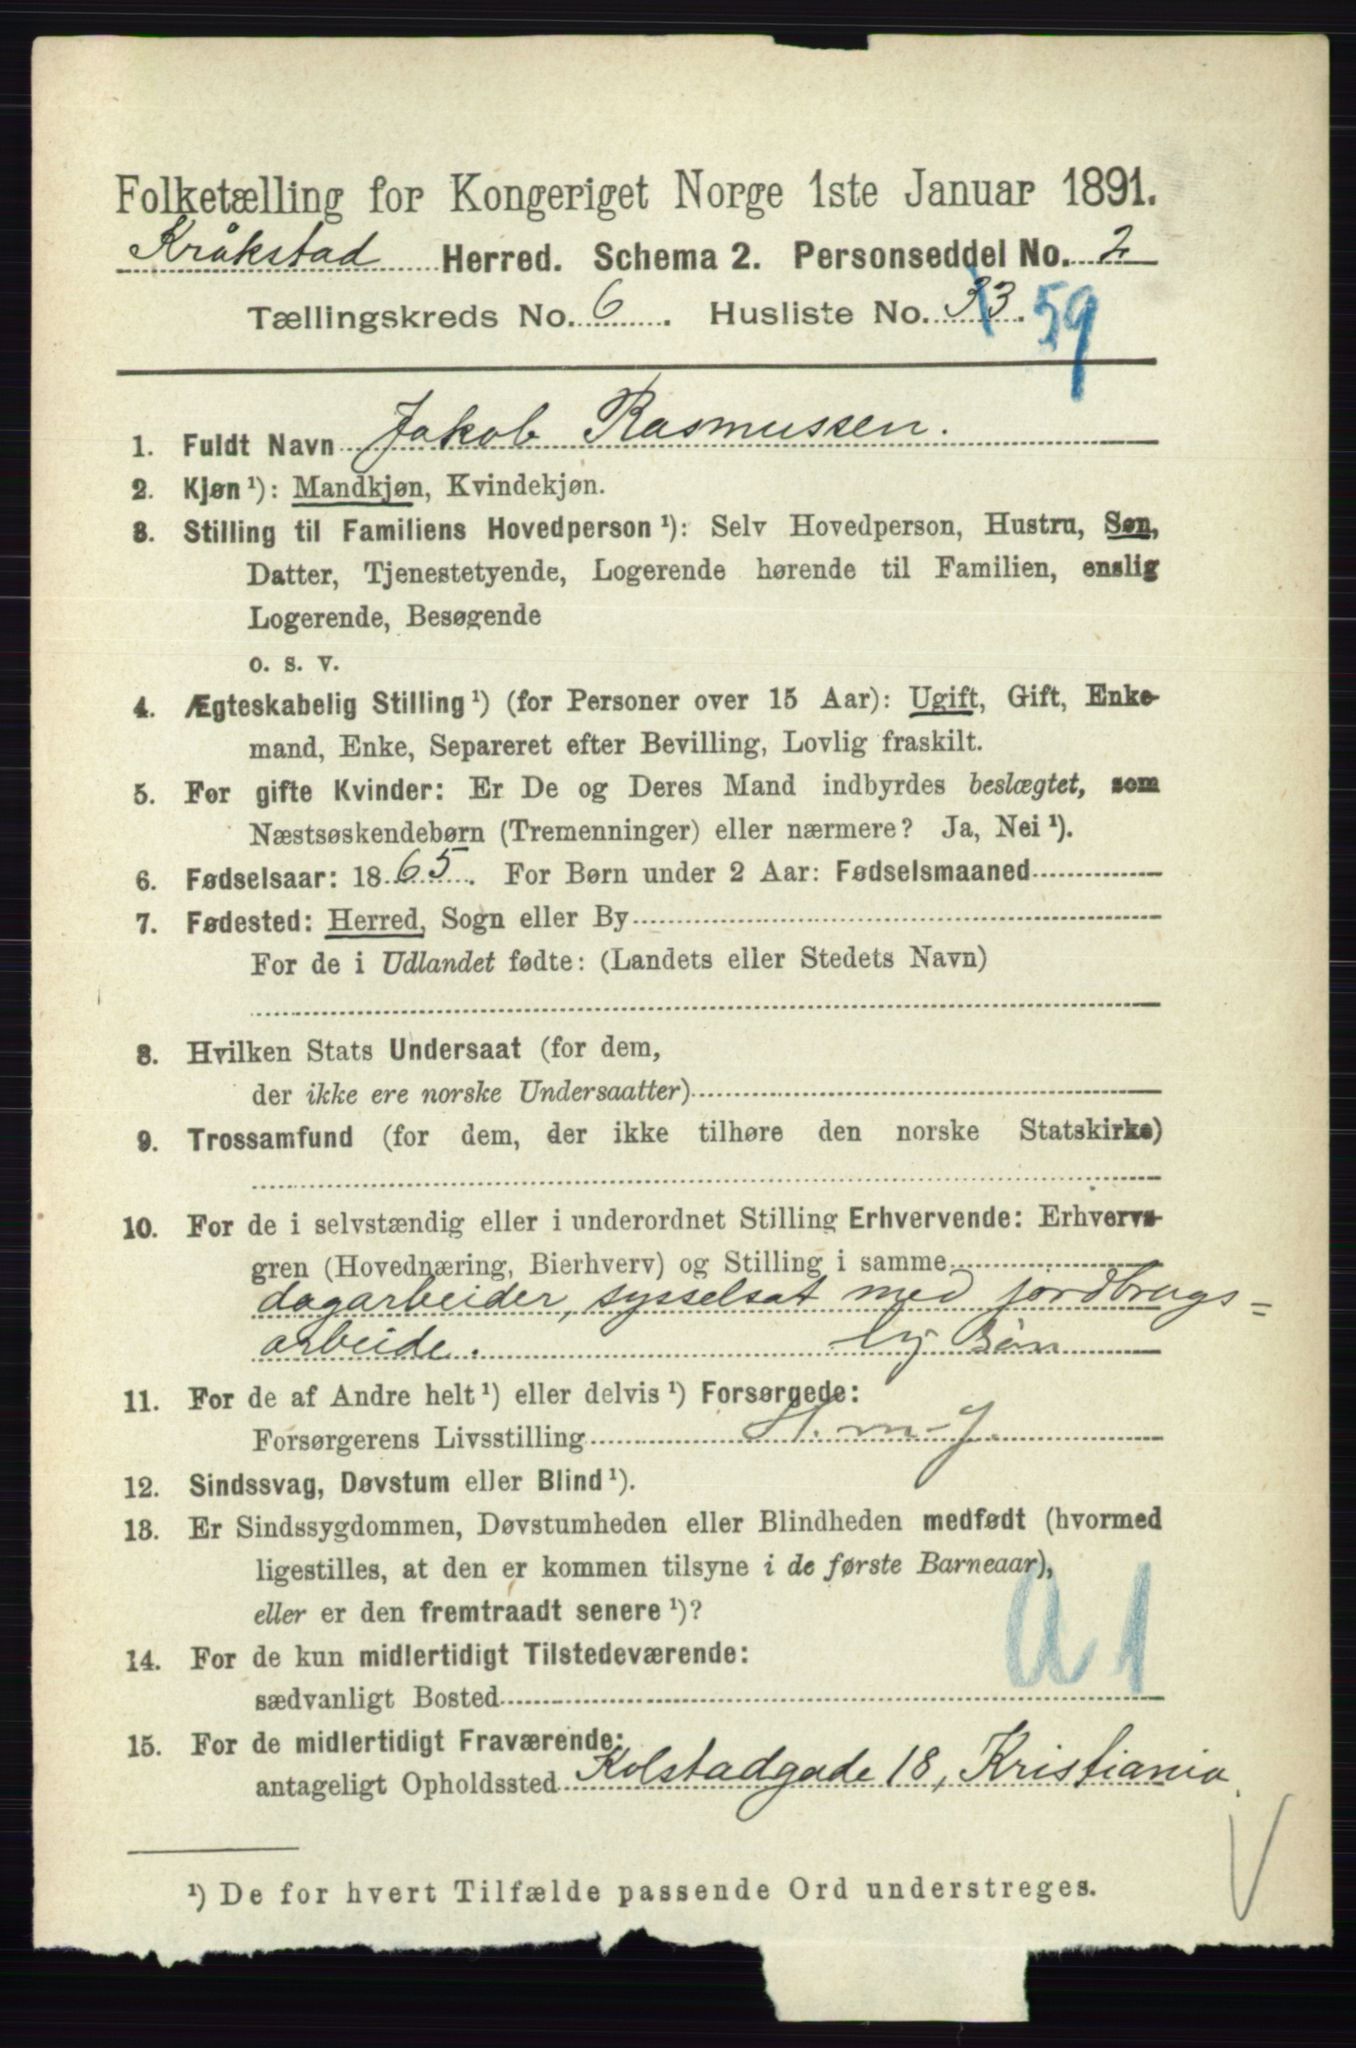 Folketælling for Kongeriget Norge 1ste Januar 1891.
Kråkstad Herred. Schema 2. Personseddel No. 2
Tællingskreds No. 6. Husliste No. 33. 59
1. Fuldt Navn Jakob Rasmussen.
2. Kjøn ¹): Mandkjøn, Kvindekjøn.
3. Stilling til Familiens Hovedperson ¹): Selv Hovedperson, Hustru, Søn,
Datter, Tjenestetyende, Logerende hørende til Familien, enslig
Logerende, Besøgende
o. s. v.
4. Ægteskabelig Stilling ¹) (for Personer over 15 Aar): Ugift, Gift, Enke-
mand, Enke, Separeret efter Bevilling, Lovlig fraskilt.
5. For gifte Kvinder: Er De og Deres Mand indbyrdes beslægtet, som
Næstsøskendebørn (Tremenninger) eller nærmere? Ja, Nei ¹).
6. Fødselsaar: 1865. For Børn under 2 Aar: Fødselsmaaned
7. Fødested: Herred, Sogn eller By
For de i Udlandet fødte: (Landets eller Stedets Navn)
8. Hvilken Stats Undersaat (for dem,
der ikke ere norske Undersaatter)
9. Trossamfund (for dem, der ikke tilhøre den norske Statskirke)
10. For de i selvstændig eller i underordnet Stilling Erhvervende: Erhvervs-
gren (Hovednæring, Bierhverv) og Stilling i samme
dagarbeider, sysselsat med jordbrugs=
arbeide.
11. For de af Andre helt ¹) eller delvis ¹) Forsørgede:
Forsørgerens Livsstilling
12. Sindssvag, Døvstum eller Blind ¹).
13. Er Sindssygdommen, Døvstumheden eller Blindheden medfødt (hvormed
ligestilles, at den er kommen tilsyne i de første Barneaar),
eller er den fremtraadt senere ¹)?
a 1
14. For de kun midlertidigt Tilstedeværende:
sædvanligt Bosted
15. For de midlertidigt Fraværende:
antageligt Opholdssted Kolstadgade 18, Kristiania.
¹) De for hvert Tilfælde passende Ord understreges.